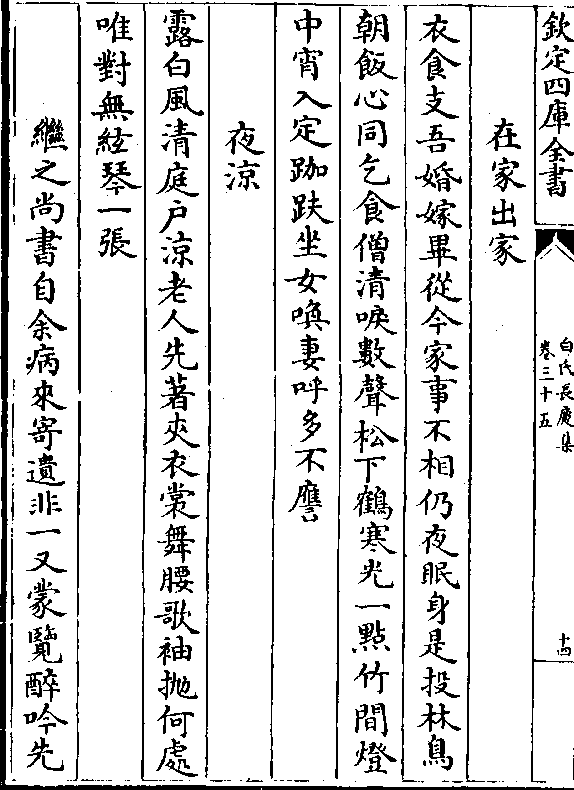 欽定四庫全書
白氏長慶集
卷三十五
十四
在家出家
衣食支吾婚嫁畢從今家事不相仍夜眠身是投林鳥
朝飯心同乞食僧清唳數聲松下鶴寒光一點竹間燈
中宵入定跏趺坐女喚妻呼多不譍
夜凉
露白風清庭户凉老人先著夾衣裳舞腰歌袖抛何處
唯對無絃琴一張
繼之尚書自余病來寄遺非一又蒙覽醉吟先